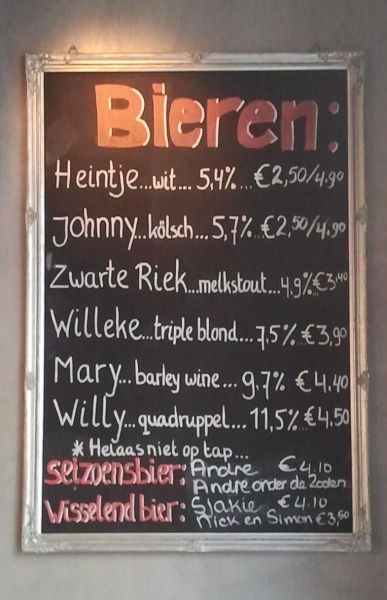 Bieren:
Heintje...wit... 5,4%...€2,50/4.90
Johnny...kölsch... 5,7%...€2,50/4.90
Zwarte Riek...melkstout...4.9%€3,40
Willeke...triple blond...7,5%€3,90
Mary... barley wine... 9.7% €4.40
Willy...quadruppel...11,5% €4.50
* Helaas niet op tap...
Seizoensbier: Andre €4.10
Andre onder de Zoden
Wisselend bier: Sjakie €4.10
Nick en Simon €3,50